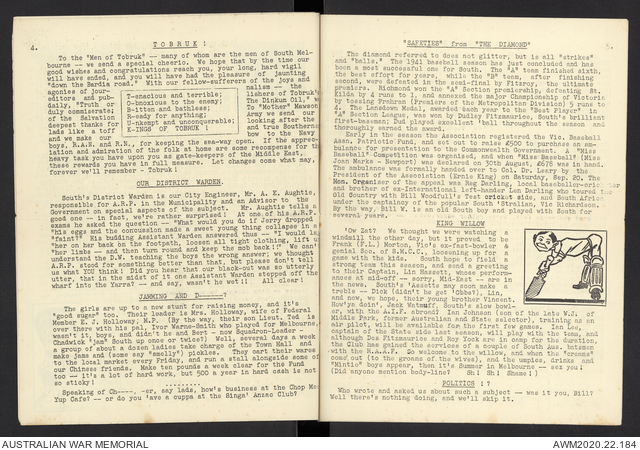 4.
TOBRUK!
To the "Men of Tobruk" -- many of whom are the men of South Mel-
bourne -- we send a special cheerio. We hope that by the time our
good wishes and congratulations reach you, your long, hard vigil
will have ended, and you will have had the pleasure of jaunting
"down the Sardia road." With our fellow-sufferers of the joys and
agonies of jour-
nalism -- the
editors and pub-
lishers of Tobruk's
daily, "Truth or
The Dinkum Oil," we
duly commiserate;
To "Mother" Mawson
of the Salvation
Army we send our
deepest thanks for
looking after the
lads like a toff
and true Southerner
and we make our
bow to the Navy
T-enacious and terrible;
O-bnoxious to the enemy;
B-itten and bathless;
R-eady for anything;
U-nkempt and unconquerable;
K-INGS OF TOBRUK !
boys, R.A.N. and R.N., for keeping the sea-way open. If the appre-
iation and admiration of the folk at home are some recompense for the
heavy task you have upon you as gate-keepers of the Middle East,
these rewards you have in full measure. Let changes come what may,
forever we'll remember - Tobruk !
OUR DISTRICT WARDEN.
South's District Warden is our City Engineer, Mr. A. E. Aughtie,
responsible for A.R.P. in the Municipality and an Advisor to the
Government on special aspects of the subject. Mr. Aughtie tells a
good one -- in fact, we're rather surprised! At one of his A.R.P.
exams he asked the question -- "What would you do if Jerry dropped
his eggs and the concussion made a sweet young thing collapse in a
"faint?" His budding Assistant Warden answered thus -- "I would lay
"her on her back on the footpath, loosen all tight clothing, lift up
"her limbs -- and then turn round and keep the mob back!" We can't
understand the D.W. teaching the boys the wrong answer; we thought
A.R.P. stood for something better than that, but please don't tell
us what YOU think ! Did you hear that our black-out was so utterly
utter, that in the midst of it one Assistant Warden stepped off the
wharf into the Yarra? -- and say, wasn't he wet!! All clear!
JAMMING AND D-------
The girls are up to a new stunt for raising money, and it's
"good sugar" too. Their leader is Mrs. Holloway, wife of Federal
Member E. J. Holloway, M.P. (By the way, their son Lieut. Ted is
over there with his pal, Ivor Warne-Smith who played for Melbourne,
wasn't it, boys, and didn't he and Bert - now Squadron-Leader -
Chadwick "jam" South up once or twice?) Well, several days a week
a group of about a dozen ladies take charge of the Town Hall and
make jams and (some say "smelly") pickles. They cart their wares
to the local market every Friday, and run a stall alongside some of
our Chinese friends. Make ten pounds a week clear for the Fund
too -- it's a lot of hard work, but 500 a year in hard cash is not
so sticky!
Speaking of Ch----, -er, say lads, how's business at the Chop
Yup Cafe? -- or do you 'ave a cuppa at the Singa' Anzac Club?
"SAFETIES" from "THE DIAMOND"
5.
The diamond referred to does not glitter, but is all "strikes"
and "balls." The 1941 baseball season has just concluded and has
been a most successful one for South. The "A" team finished sixth,
the best effort for years, while the "B" team, after finishing
second, were defeated in the semi-final by Fitzroy, the ultimate
premiers. Richmond won the "A" Section premiership, defeating St.
Kilda by 4 runs to 1, and annexed the major Championship of Victoria
by tossing Prahran (Premiers of the Metropolitan Division) 5 runs to
4. The Lansdown Medal, awarded each year to the "Best Player" in
"A" Section League, was won by Dudley Fitzmaurice, South's brilliant
first-baseman; Dud played excellent 'ball throughout the season and
thoroughly earned the award.
Early in the season the Association registered the Vic. Baseball
Assn. Patriotic Fund, and set out to raise £500 to purchase an am-
bulance for presentation to the Commonwealth Government. A "Miss
Baseball" Competition was organised, and when "Miss Baseball" (Miss
Joan Marks - Newport) was declared on 30th August, £678 was in hand.
The ambulance was formally handed over to Col. Dr. Leary by the
President of the Association (Ernie King) on Saturday, Sep. 20. The
Hon. Organiser of the appeal was Reg Darling, local baseballer-cricketer
and brother of ex-International left-hander Len Darling who toured the
Old Country with Bill Woodfull's Test cricket side, and South Africa
under the captaincy of the popular South 'Stralian, Vic Richardson.
By the way, Bill W. is an old South boy and played with South for
several years.
KING WILLOW
'Ow Zat? We thought we were watching a
windmill the other day, but it proved to be
Frank (F.L.) Morton, Vic's ex-fast-bowler &
genial Sec. of S.M.C.C., loosening up for a
game with the kids. South hope to field a
strong team this season, and send a greeting
to their Captain, Lin Nassett, whose perform-
ances at mid-off -- sorry, Mid-East - are in
the news. South's 'Assetts may soon make a
treble -- Dick (didn't he get 'Obbs?), Lin,
and now, we hope, their young brother Vincent.
How'ya doin', Jack Watmuff, South's slow bowl-
er, with the A.I.F. abroad? Ian Johnson (son of the late W.J. of
Middle Park, former Australian and State selector), training as an
air pilot, will be available for the first few games. Ian Lee,
captain of the State side last season, will play with the team, and
although Des Fitzmaurice and Roy York are in camp for the duration,
the Club has gained the services of a couple of South Aus. batsmen
with the R.A.A.F. So welcome to the willow, and when the "creams"
come out (to the groans of the wives), and the umpies, drinks and
"Mintie" boys appear, then it's Summer in Melbourne -- sez you!
(Did anyone mention body-line? Sh! Sh! Shame!)
POLITICS !?
Who wrote and asked us about such a subject -- was it you, Bill?
Well there's nothing doing, and we'll skip it.
AUSTRALIAN WAR MEMORIAL
AWM2020.22.184